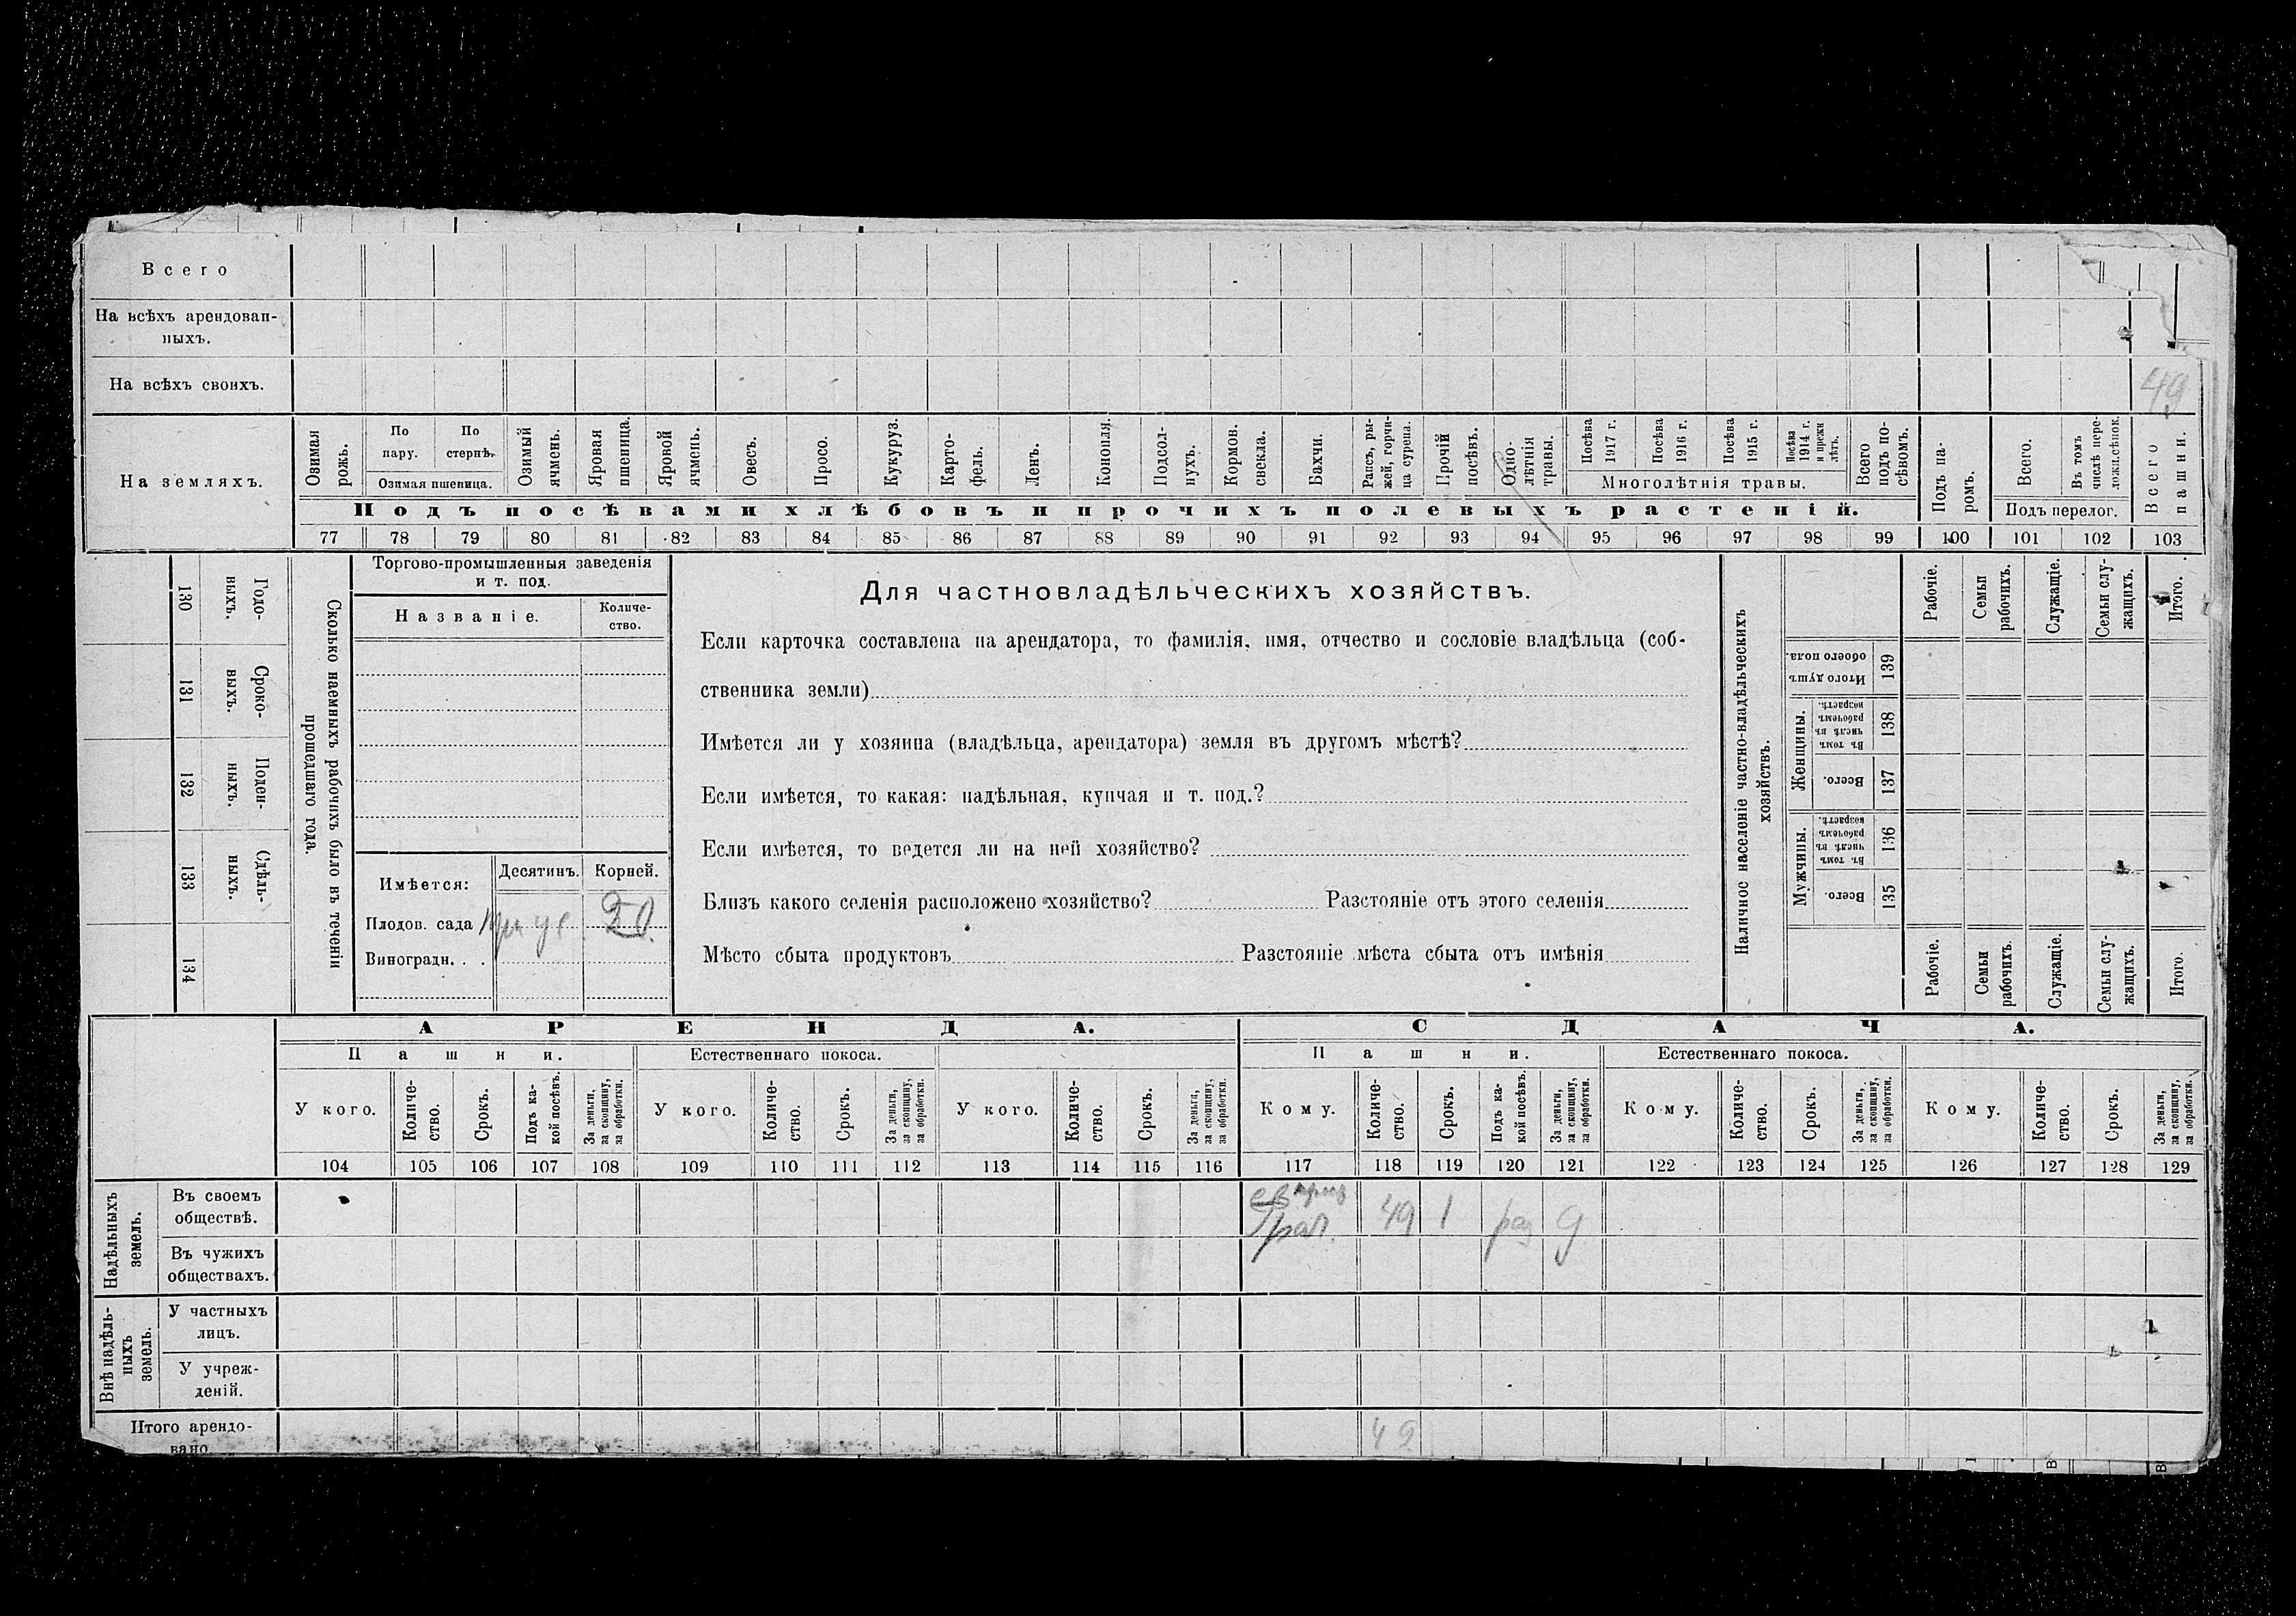 Всего
На всѣхъ арендован-
ныхъ.
На всѣхъ своихъ. 49
На земляхъ.
Озимая рожь.
По пару.
По стернѣ.
Озимая пшеница.
Озимый ячмень.
Яровая пшеница.
Яровой ячмень.
Овесъ.
Просо.
Кукуруз.
Карто-
фель.
Ленъ.
Конопля.
Подсол-
нухъ.
Кормов. свекла.
Бахчи.
Рапсъ, ры-
жей, горчи-
ца сурепа.
Прочій посѣвъ.
Одно-
лѣтнія травы.
Посѣва 1917 г.
Посѣва 1916 г.
Посѣва 1915 г.
Посѣва 1914 г. и прежн лѣтъ.
Многолѣтнія травы.
Всего подъ по-
сѣвомъ.
Подъ па-
ромъ.
Всего.
Въ томъ числѣ пере-
ложн.сѣнок.
Подъ перелог.
Всего пашни.
Подъ посѣвами хлѣбовъ и прочихъ полевыхъ растеній.
77 78 79 80 81 82 83 84 85 86 87 88 89 90 91 92 93 94 95 96 97 98 99 100 101 102 103
Годо-
выхъ.
130
Сроко-
выхъ.
131
Поден-
ныхъ.
132
Сдѣль-
ныхъ.
133
134
Сколько наемныхъ рабочихъ было въ теченіи
прошедшаго года.
Торгово-промышленныя заведенія
и т. под.
Названіе. Количе-
ство.
Имѣется: Десятинъ. Корней.
Плодов. сада 20
Виноградн. . .
Для частновладѣльческихъ хозяйствъ.
Если карточка составлена на арендатора, то фамилія, имя, отчество и сословіе владѣльца (соб-
ственника земли)
Имѣется ли у хозяина (владѣльца, арендатора) земля въ другомъ мѣстѣ?
Если имѣется, то какая: надѣльная, купчая и т. под.?
Если имѣется, то ведется ли на ней хозяйство?
Близъ какого селенія расположено хозяйство? Разстояніе отъ этого селенія
Мѣсто сбыта продуктовъ Разстояніе мѣста сбыта отъ имѣнія
Наличное населеніе частно-владѣльческихъ
хозяйствъ.
Рабочіе.
Семьи рабочихъ.
Служащіе.
Семьи слу-
жащихъ.
Итого.
Итого душъ обоего пола. 139
Женщины.
Въ томъ числѣ въ рабочемъ возрастѣ. 138
Всего. 137
Мужчины.
Въ томъ числѣ въ рабочемъ возрастѣ. 136
Всего. 135
Рабочіе.
Семьи рабочихъ.
Служащіе.
Семьи слу-
жащихъ.
Итого.
АРЕНДА. СДАЧА.
Пашни. Естественнаго покоса. Пашни. Естественнаго покоса.
У кого.
Количе-
ство.
Срокъ.
Подъ ка-
кой посѣвъ.
За деньги, за скопщину, за обработки.
У кого.
Количе-
ство.
Срокъ.
За деньги, за скопщину, за обработки.
У кого.
Количе-
ство.
Срокъ.
За деньги, за скопщину, за обработки.
Кому.
Количе-
ство.
Срокъ.
Подъ ка-
кой посѣвъ.
За деньги, за скопщину, за обработки.
Кому.
Количе-
ство.
Срокъ.
За деньги, за скопщину, за обработки.
Кому.
Количе-
ство.
Срокъ.
За деньги, за скопщину, за обработки.
104 105 106 107 108 109 110 111 112 113 114 115 116 117 118 119 120 121 122 123 124 125 126 127 128 129
Надѣльныхъ земель.
Въ своемъ
обществѣ. 49 1
Въ чужихъ
обществахъ.
Внѣ надѣль-
ныхъ земель.
У частныхъ
лицъ.
У учреж-
деній.
Итого арендо-
вано 49